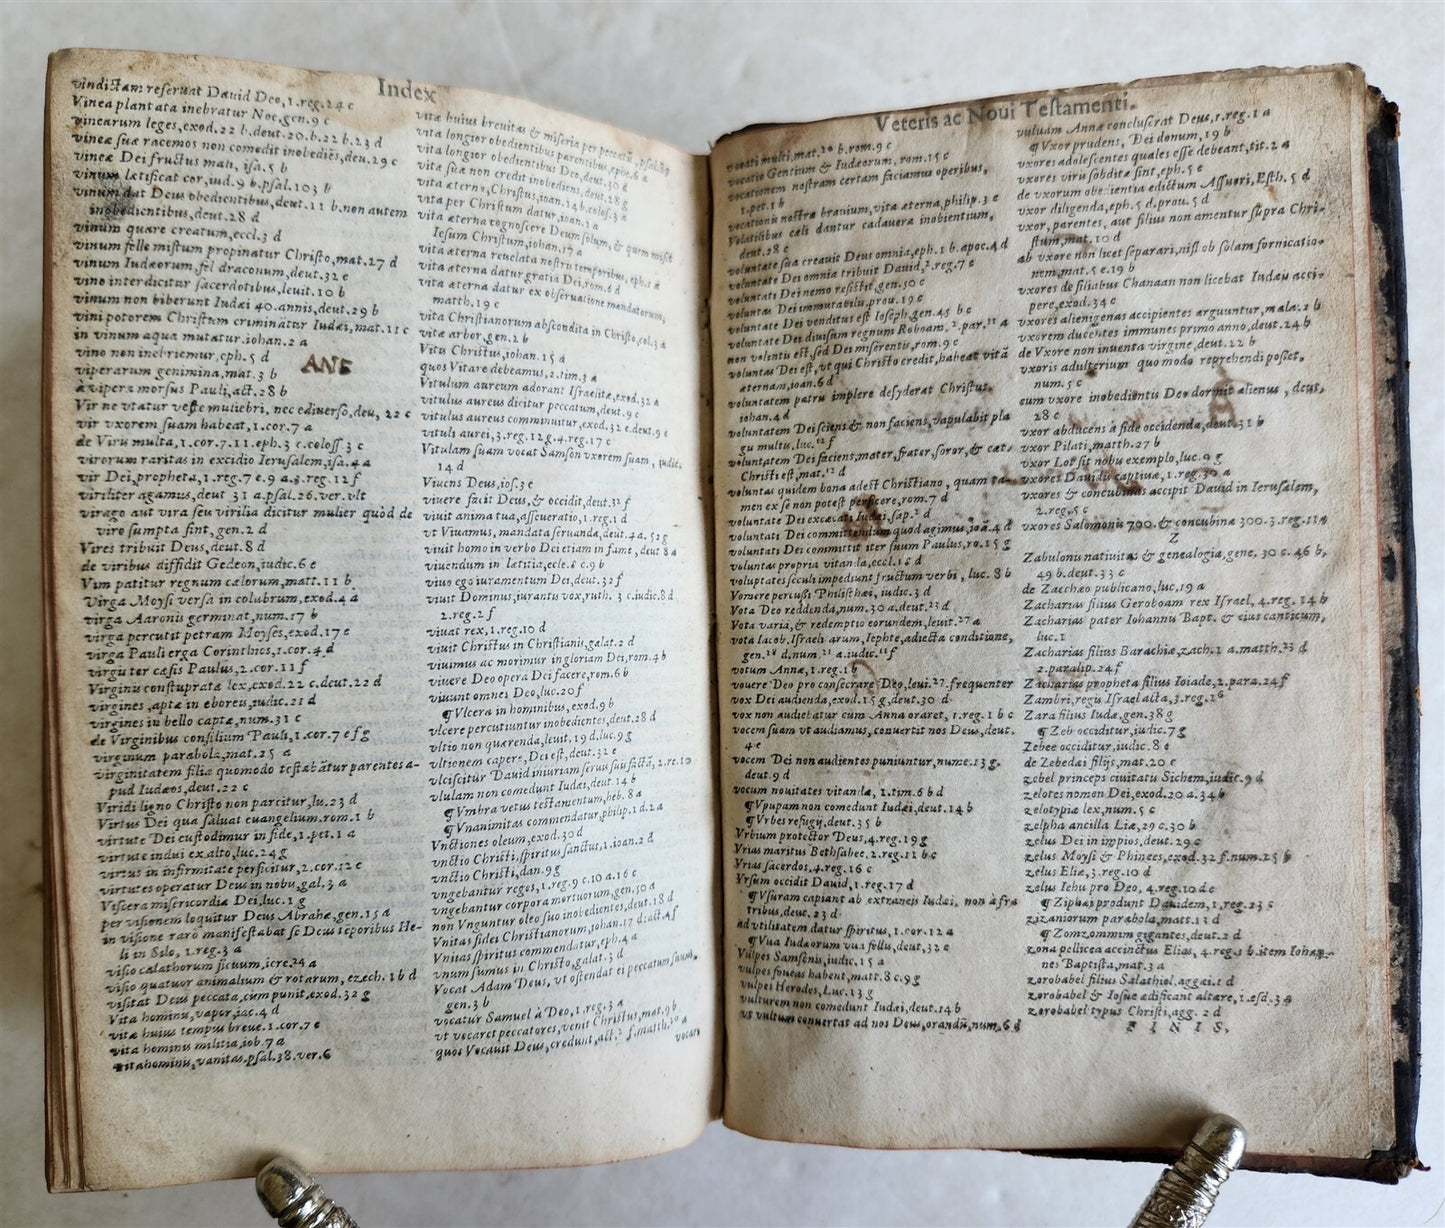 Index
vindictam reseruat Dauid Deo,1.reg.24 c
Vinea plantata inebratur Noe,gen.9 c
vinearum leges,exod.22 b.deut.20.b.22 b.23 d
vineæ suæ racemos non comedit inobediēs,deu.29 c
vineæ Dei fructus mali, isa.5 b
vinum lætificat cor,iud.9 b.psal.103 b
vinum dat Deus obedientibus,deut.11 b.non autem
inobedientibus,deut.28 d
vinum quare creatum,eccl.3 d
vinum felle mistum propinatur Christo,mat.27 d
vinum Iudæorum,fel draconum,deut.32 e
vino interdicitur sacerdotibus,leuit.10 b
vinum non biberunt Iudæi 40.annis,deut.29 b
vini potorem Christum criminãtur Iudæi,mat.11 c
in vinum aqua mutatur.iohan.2 a
vino non inebriemur,eph.5 d
viperarum genimina,mat.3 b
ANE
a vipera morsus Pauli,act.28 b
Vir ne vtatur veste muliebri, nec ediuerso,deu, 22 c
vir vxorem suam habeat,1.cor.7 a
de Viru multa,1.cor.7.11.eph.3 c.coloss.3 c
virorum raritas in excidio Ierusalem,isa.4 a
vir Dei,propheta,1.reg.7 e.9 a.3.reg.12 f
viriliter agamus,deut 31 a.psal.26.ver.vlt
virago aut vira seu virilia dicitur mulier quòd de
viro sumpta sint,gen.2 d
Vires tribuit Deus,deut.8 d
de viribus diffidit Gedeon,iudic.6 e
Vim patitur regnum cælorum,matt.11 b
Virga Moysi versa in colubrum,exod.4 a
virga Aaronis germinat,num.17 b
virga percutit petram Moyses,exod.17 c
virga Pauli erga Corinthios,1.cor.4 d
virgis ter cæsis Paulus,2.cor.11 f
Virginis constupratæ lex,exod.22 c.deut.22 d
virgines ,aptæ in eboreis,iudic.21 d
virgines in bello captæ,num.31 c
de Virginibus consilium Pauli,1.cor.7 e f g
virginum parabola,mat.25 a
virginitatem filiæ quomodo testabãtur parentes a-
pud Iudæos,deut.22 c
Viridi ligno Christo non parcitur,lu.23 d
Virtus Dei qua saluat euangelium.rom.1 b
virtute Dei custodimur in fide,1.pet.1 a
virtute indui ex alto,luc.24 g
virtus in infirmitate perficitur,2.cor.12 c
virtutes operatur Deus in nobis,gal.3 a
Viscera misericordiæ Dei,luc.1 g
per visionem loquitur Deus Abrahæ,gen.15 a
in visione rarò manifestabat se Deus tēporibus He-
li in Silo, 1.reg.3 a
visio calathorum ficuum,iere.24 a
visio quatuor animalium & rotarum, ezech.1 b d
visitat Deus peccata,cùm punit,exod.32 g
Vita hominis,vapor,iac.4 d
vitæ huius tempus breue.1.cor.7 e
vita hominis militia,iob.7 a
vita hominis,vanitas.psal.38.ver.6
vitæ huius breuitas & miseria per peccatũ ,psal.89
vita longior obedientibus parentibus,ephe.6 a
vita longior obedientibus Deo,deut.30 d
vita sua non credit inobediens,deut.28 g
vita æterna,Christus,ioan.14 b.colos.3 a
vita per Christum datur,ioan.1 a
vita æterna cognoscere Deum solum, & quem misit
Iesum Christum,iohan.17 a
vita æterna reuelata nostris temporibus, eph.2 a
vita æterna datur gratia Dei,rom.6 d
vita æterna datur ex obseruatione mandatorum,
matth.19 c
vita Christianorum abscondita in Christo,col.3 a
vitæ arbor,gen.2 b
Vitis Christus,iohan.15 a
quos Vitare debeamus,2.tim.3 a
Vitulum aureum adorant Israelitæ,exod.32 a
vitulus aureus dicitur peccatum,deut.9 c
vitulus aureus comminuitur,exod.32 e.deut.9 c
vituli aurei,3.reg.12 g.4.reg.17 c
Vitulam suam vocat Samson vxorem suam , iudic.
14 d
Viuens Deus,ios.3 c
viuere facit Deus,& occidit,deut.32 f
viuit anima tua,asseueratio,1.reg.1 d
vt Viuamus, mandata seruanda,deut.4 a. 5 2 g
viuit homo in verbo Dei etiam in fame, deut 8 a
viuendum in lætitia,eccle.8 c.9 b
viuo ego iuramentum Dei,deut.32 f
viuit Dominus,iurantis vox,ruth. 3 c.iudic.8 d
2.reg.2 f
viuat rex,1.reg.10 d
viuit Christus in Christianis,galat.2 d
viuimus ac morimur in gloriam Dei,rom.4 b
viuere Deo opera Dei facere,rom.6 b
viuunt omnes Deo,luc.20 f
¶ Vlcera in hominibus,exod.9 b
vlcere percutiuntur inobedientes,deut.28 d
vltio non quærenda,leuit.19 d.luc.9 g
vltionem capere, Dei est,deut.32 e
vlciscitur Dauid iniuriam seruis suis factã, 2.re.10
vlulam non comedunt Iudæi,deut.14 b
¶ Vmbra vetus testamentum,heb.8 a
¶ Vnanimitas commendatur,philip.1 d.2 a
Vnctiones oleum,exod.30 d
vnctio Christi,spiritus sanctus,1.ioan.2 d
vnctio Christi,dan.9 g
vngebantur reges,1.reg.9 c.10 a.16 c
vngebantur corpora mortuorum,gen.50 a
non Vnguntur oleo suo inobedientes,deut.18 d
Vnitas fidei Christianorum,iohan.17 d;act.4 f
Vnitas spiritus commendatur,eph.4 a
vnum sumus in Christo,galat.3 d
Vocat Adam Deus, vt ostendat ei peccatum suum,
gen.3 b
vocatur Samuel à Deo,1.reg.3 a
vt vocaret peccatores,venit Christus,mat.9 b
quos Vocauit Deus,credunt,act.2 f.matth.20 a
vocati
Veteris ac Noui Testamenti.
vocati multi,mat.20 b.rom.9 c
vocatio Gentium & Iudæorum, rom.15 c
vocationem nostram certam faciamus operibus,
1.pet.1 b
vocationis nostræ brauium,vita æterna,philip.3 c
Volatilibus cæli dantur cadauera inobientium,
deut.28 c
voluntate sua creauit Deus omnia,eph.1 b.apoc.4 d
voluntate Dei omnia tribuit Dauid,2.reg.7 e
voluntati Dei nemo resistit,gen.50 c
voluntas Dei immutabilis,prou.19 c
voluntate Dei venditus est Ioseph,gen.45 b c
voluntate Dei diuisum regnum Roboam, 2.par.11 a
non volentis est,sed Dei miserentis,rom.9 c
voluntas Dei est,vt qui Christo credit,habeat vitã
æternam,ioan.6 d
voluntatem patris implere desyderat Christus,
iohan.4 d
voluntatem Dei sciens & non faciens,vapulabit pla
gis multis,luc.12 f
voluntatem Dei faciens,mater,frater,soror,& cæt.
Christi est,mat.12 d
voluntas quidem bona adest Christiano , quam ta-
men ex se non potest perficere,rom.7 d
voluntate Dei excæcati Iudæi,sap.2 d
voluntati Dei committendum quod agimus,ioã.4 d
voluntati Dei committit iter suum Paulus,ro.15 g
voluntas propria vitanda,eccl.18 d
voluptates seculi impediunt fructum verbi , luc. 8 b
Vomere percussi Philisthæi, iudic.3 d
Vota Deo reddenda,num.30 a.deut.23 d
Vota varia,& redemptio eorundem,leuit.27 a
vota Iacob,Israelitarum,Iephte,adiecta conditione,
gen.28 d.num.21 a.iudic.11 f
votum Annæ,1.reg.1 b
vouere Deo pro consecrare Deo,leui.27.frequenter
vox Dei audienda,exod.15 g,deut.30 d
vox non audiebatur cùm Anna oraret, 1.reg.1 b c
vocem suam vt audiamus, conuertit nos Deus,deut.
4 e
vocem Dei non audientes puniuntur, nume.13 g.
deut.9 d
vocum nouitates vitandæ, 1.tim.6 b d
¶ Vpupam non comedunt Iudæi,deut.14 b
¶ Vrbes refugij,deut.35 b
Vrbium protector Deus,4.reg.19 g
Vrias maritus Bethsabee.2.reg.11 b c
Vrias sacerdos,4.reg.16 c
Vrsum occidit Dauid,1.reg.17 d
¶ Vsuram capiant ab extraneis Iudæi, non à fra
tribus,deut.23 d
ad vtilitatem datur spiritus,1.cor.12 a
¶ Vua Iudæorum vua fellis,deut,32 e
Vulpes Samsonis,iudic.15 a
vulpes foueas habent,matt.8 c.9 g
vulpes Herodes,Luc.13 g
vulturem non comedunt Iudæi,deut.14 b
vt vultum conuertat ad nos Deus,orandũ,num.6 d
vuluam Annæ concluserat Deus,1.reg.1 a
¶ Vxor prudens, Dei donum,19 b
vxores adolescentes quales esse debeant,tit.2 a
vxores viris subditæ sint,eph.5 e
de vxorum obedientia edictum Assueri,Esth.5 d
vxor diligenda,eph.5 d.prou.5 d
vxor, parentes, aut filius non amentur supra Chri-
stum,mat.10 d
ab vxore non licet separari,nisi ob solam fornicatio-
nem,mat.5 e.19 b
vxores de filiabus Chanaan non licebat Iudæis acci-
pere,exod.34 c
vxores alienigenas accipientes arguuntur,mala.2 b
vxorem ducentes immunes primo anno,deut.24 b
de Vxore non inuenta virgine,deut.22 b
vxoris adulterium quomodo reprehendi posset,
num.5 c
cum vxore inobedientis Deo dormit alienus , deut,
28 c
vxor abducens à fide occidenda,deut.31 b
vxor Pilati,matth.27 b
vxor Lot sit nobis exemplo,luc.9 g
vxores Dauidis captiuæ,1.reg.30 a
vxores & concubinas accipit Dauid in Ierusalem,
2.reg.5 c
vxores Salomonis 700. & concubinæ 300.3.reg.11 a
Z
Zabulonis natiuitas & genealogia,gene. 30 c.46 b,
49 b.deut.33 c
de Zacchæo publicano,luc,19 a
Zacharias filius Geroboam rex Israel, 4.reg.14 b
Zacharias pater Iohannis Bapt. & eius canticum,
luc.1
Zacharias filius Barachiæ,zach.1 a.matth.23 d
2.paralip.24 f
Zacharias propheta filius Ioiade,2.para.24 f
Zambri,regis Israel acta,3.reg.16
Zara filius Iudæ,gen.38 g
¶ Zeb occiditur,iudic.7 g
Zebee occiditur,iudic.8 e
de Zebedæi filijs,mat.20 c
zebel princeps ciuitatis Sichem,iudic.9 d
zelotes nomen Dei,exod.20 a.34 b
zelotypiæ lex,num.5 c
zelpha ancilla Liæ,29 c.30 b
zelus Dei in impios,deut.29 c
zelus Moysi & Phinees,exod.32 f.num.25 b
zelus Eliæ,3.reg.10 d
zelus Iehu pro Deo, 4.reg.10 d e
¶ Ziphæs produnt Dauidem,1.reg.23 c
zizaniorum parabola,matt.13 d
¶ Zomzommim gigantes,deut.2 d
zona pellicea accinctus Elias, 4.reg.1 b.item Iohan-
nes Baptista,mat.3 a
zorobabel filius Salathiel,aggæi.1 d
zorobabel & Iosue ædificant altare,1.esd.3 a
zorobabel typus Christi,agg. 2 d
F I N I S,